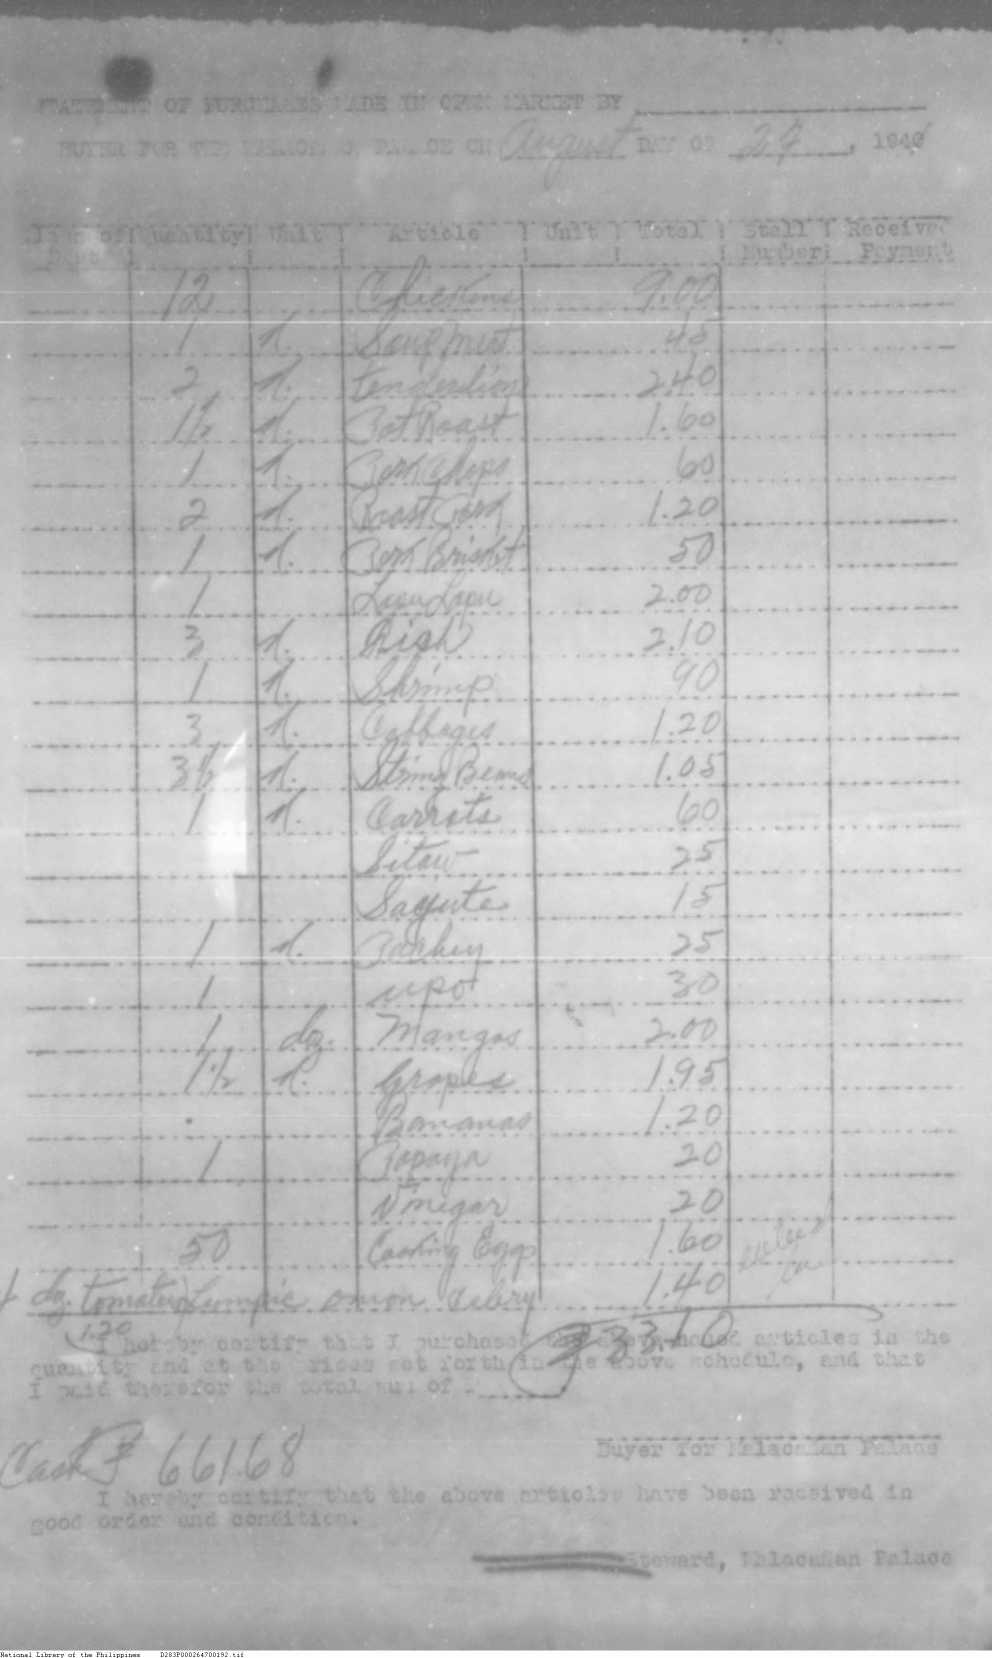 STATEMENT OF PURCHASES MADE IN OPEN MARKET BY
BUYER FOR THE MALACAÑAN PALACE ON August DAY OF 27, 1946
Quantity Unit Article Unit Total Stall Number Received Payment
12 Chickens 9.00
1 k. Soup Meat 45
2 k. tenderlion 2.40
1½ k. Pot Roast 1.60
1 k. Pork Chops 60
2 k. Roast Pork 1.20
1 k. Pork Brisket 50
1 Lapu Lapu 2.00
3 k. Fish 2.10
1 k. Shrimp 90
3 k. Cabbages 1.20
3½ k. String Beans 1.05
1 k. Carrots 60
Sitaw 25
Sayute 15
1 k. 25
1 upo 30
1 dz. Mangos 2.00
1½ k. Grapes 1.95
Bananas 1.20
1 Papaya 20
Vinegar 20
50 Cooking Eggs 1.60
dz. tomatoes onion Celery 1.40
1.20
33.10
I hereby certify that I purchased the above named articles in the
quantity and at the prices set forth in the above schedule, and that
I paid therefor the total sum of
Buyer for Malacañan Palace
Cash ₱ 661.68
I hereby certify that the above articles have been received in
good order and condition.
Steward, Malacañan Palace
National Library of the Philippines D283P000264700192.tif